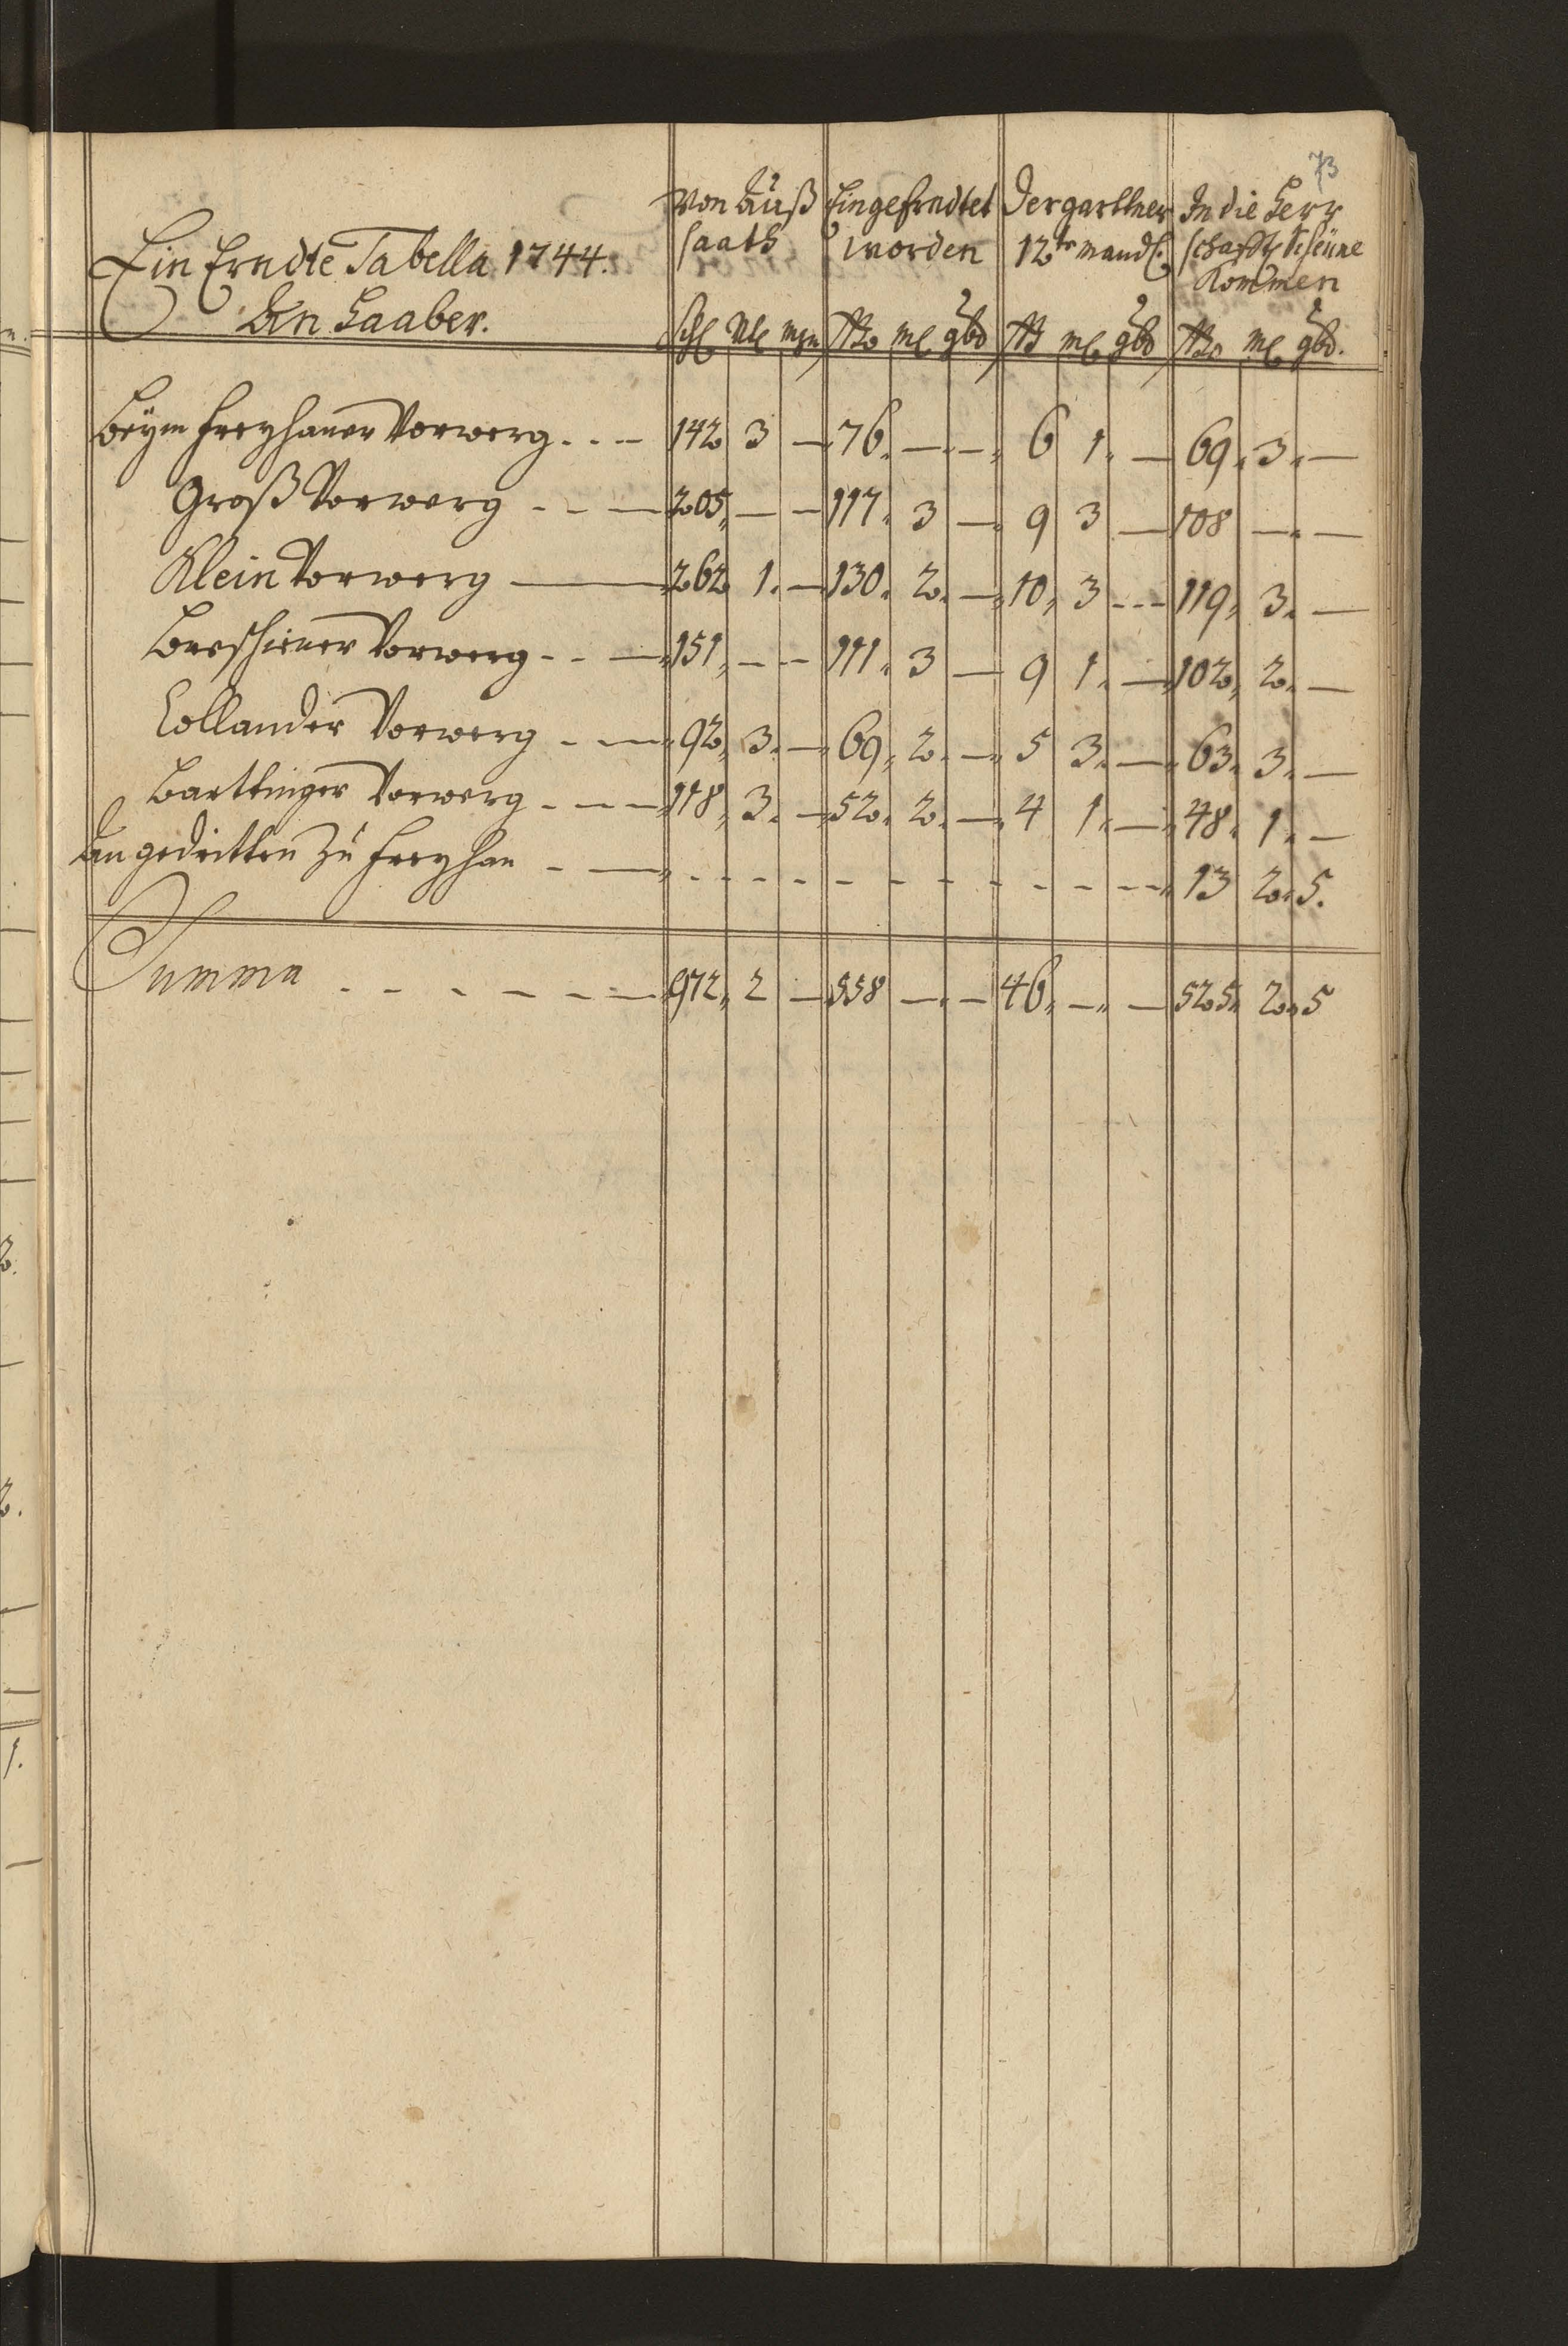 73
Ein Erndte Tabella 1744.
An Haaber.
Von Auß saath
Eingeerndtet worden
Der garttner 12te mandl.
In die Herr schafftl Scheüne Kommen
Schl Vtl mzn ßo ml gbd ß ml gbd ßo ml gbd.
Beÿm Freyhaner Vorwerg - - - 142 3 — 76. — — 6 1. — 69. 3. —
Groß Vorwerg - - — 205. — — 117. 3 — 9 3 — 108 — —
Klein Vorwerg — 262 1. — 130. 2. — 10, 3 - - - 119, 3. —
Vorwerg - - — 151, - - - 111. 3 — 9 1. — 102, 2. —
Collander Vorwerg - — 92, 3. — 69, 2. — 5 3. — 63. 3. —
Barttniger Vorwerg - - — 118, 3. — 52. 2. — 4 1. — 48. 1. —
An gedritten Zu Freyhan - — - - - - - - - - - - 13 2. 5.
Summa - - - - - — 972, 2 — 558 — — 46, — — 525. 2. 5